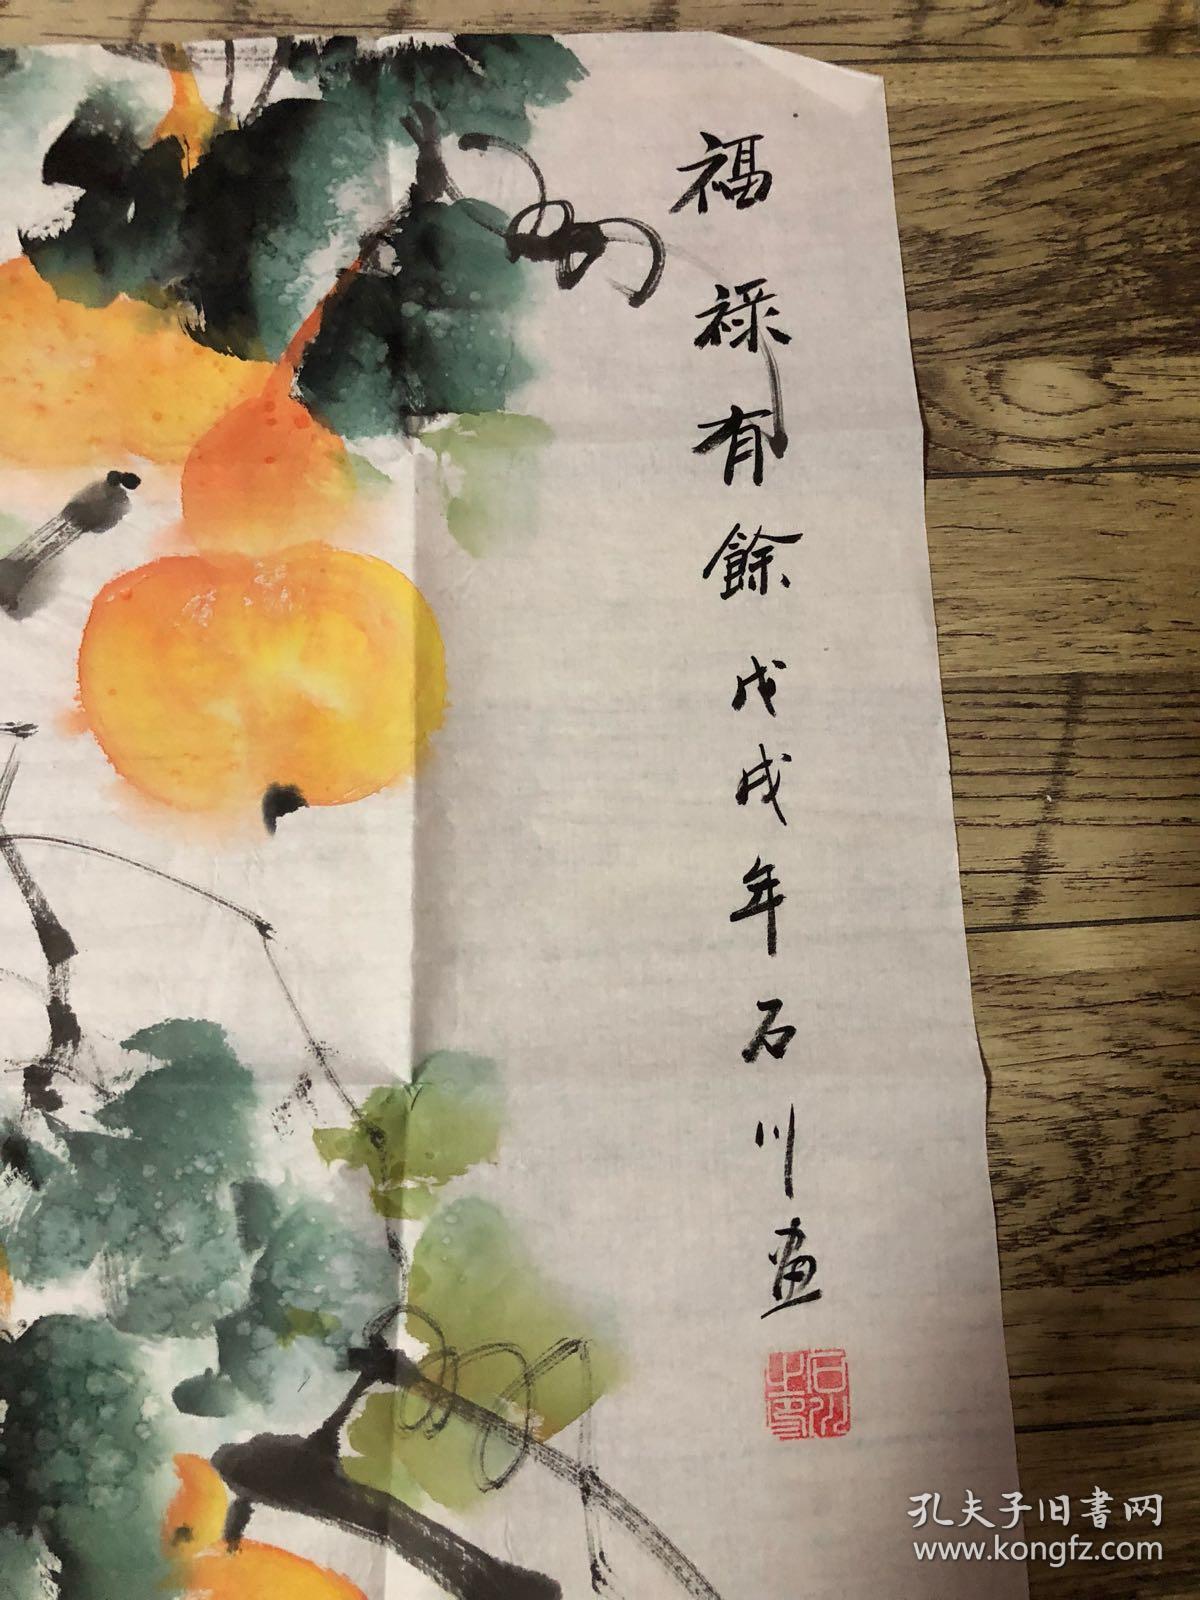 福禄有餘戊戌年石川画
石川之印
孔夫子旧書网
www.kongfz.com